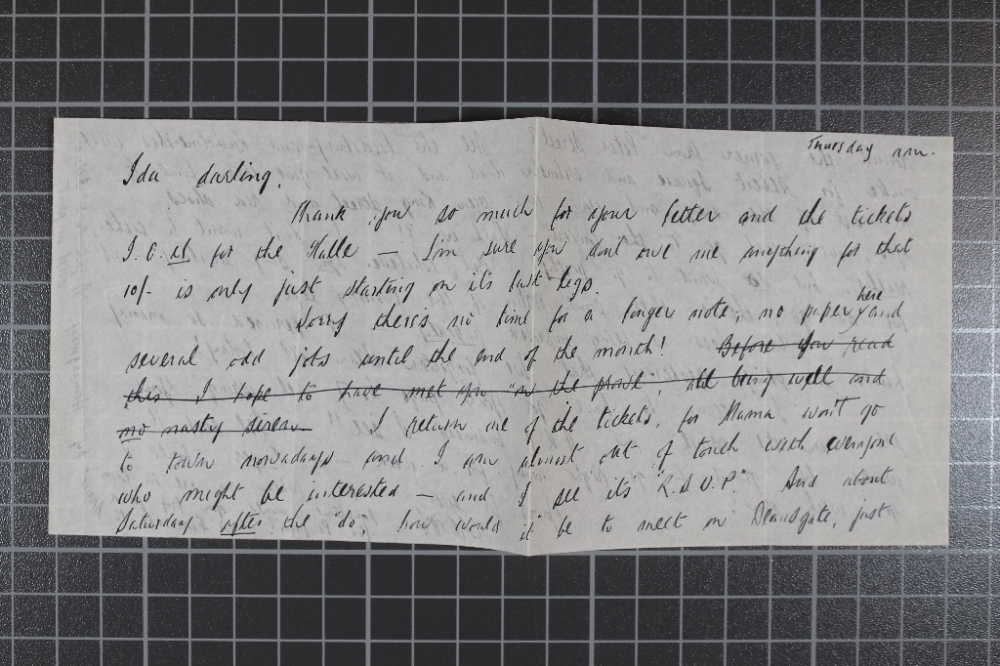 Thursday a.m.
Ida darling,
Thank you so much for your letter and the tickets
I.C. for the Halle — I'm sure you don't owe me anything for that
10/- is only just starting on it's last legs.
Sorry there's no time for a longer note, no paper here and
several odd jobs until the end of the month! Before you read
this I hope to have met you "on the prowl", all being well and
no nasty siren I return one of the tickets, for Mama won't go
to town nowadays and I am almost out of touch with everyone
who might be interested — and I see its "R.S.V.P" And about
Saturday after the "do", how would it be to meet on Deansgate, just